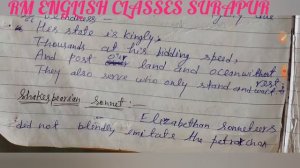 RM ENGLISH CLASSES SURAPUR
His state is kingly,
Thousands at his bidding speed,
And post o'er land and ocean without rest
They also serve who only stand and wait.
Shakespearean Sonnet:-
Elizabethan sonneteers
did not blindly imitate the petrarchan